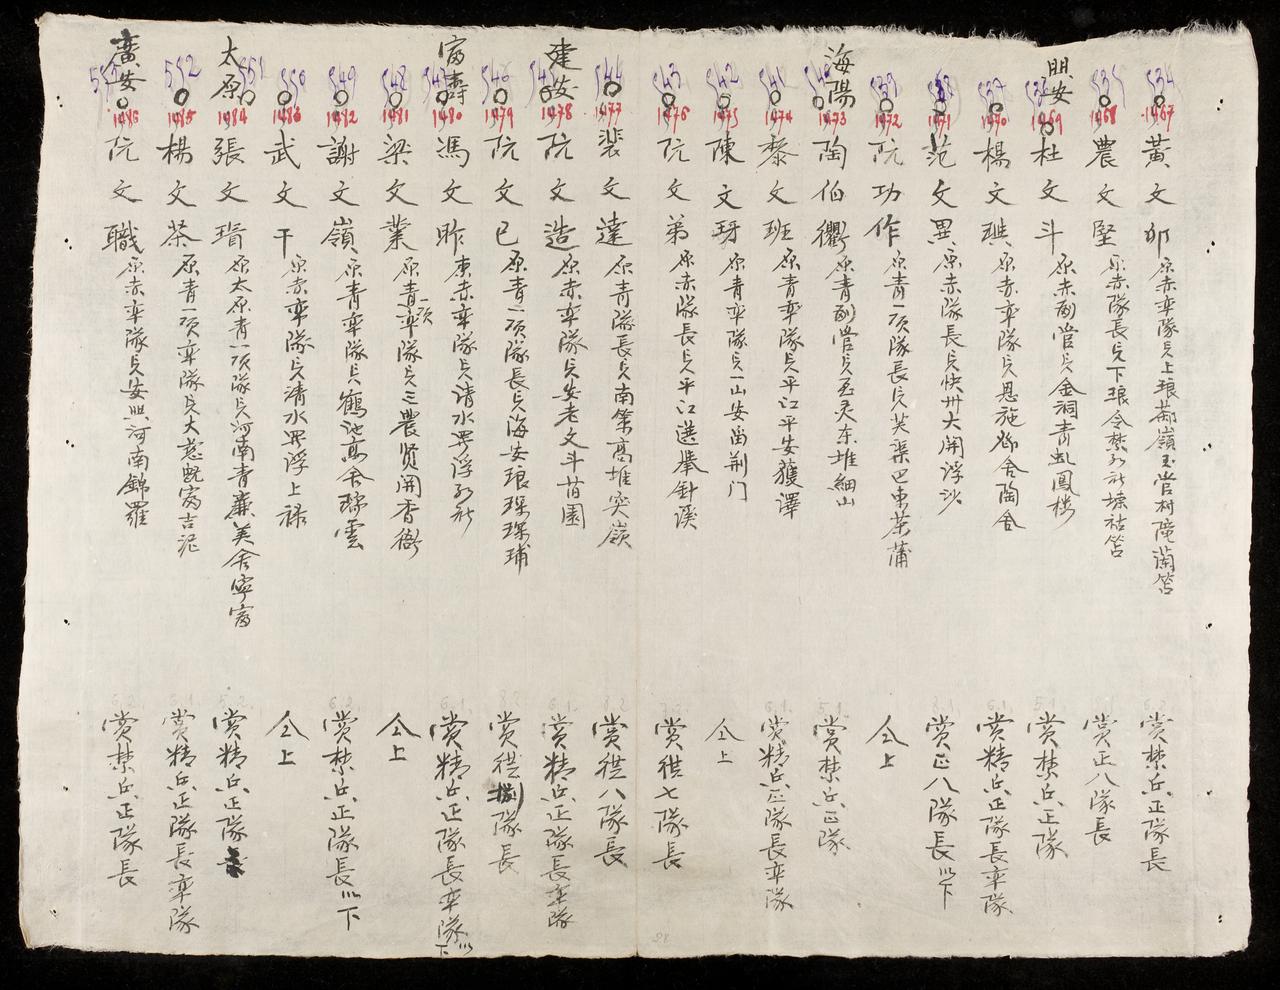 534 1467 黃文卯 原赤奕隊兵上琅鄰嶺玉 賞禁兵正隊長
535 1468 農文堅 原赤隊長兵下琅令禁 賞正八隊長
照安 1469 杜文斗 原赤副管兵金祠青虬鳳楼 賞禁兵正隊
537 1470 楊文 原赤奕隊兵恩施 舍陶舍 賞精兵正隊長奕隊
1471 范文異 原赤隊長兵快卅大開浮沙 賞正八隊長以下
539 1472 阮功作 原青一項隊長兵芙渠巴東荣蒲 仝上
海陽 1473 陶伯衢 原青副管兵至灵东堆細山 賞禁兵正隊
541 1474 黎文班 原青奕隊兵平江平安獲澤 賞精兵正隊長奕隊
542 1475 陳文玡 原青奕隊兵一山安苗荆门 仝上
543 1476 阮文弟 原赤隊長兵平江選攀針溪 賞從七隊長
544 1477 裴文達 原青隊長兵南策高堆突嶺 賞從八隊長
建安 1478 阮文造 原赤奕隊兵安老文斗苗園 賞精兵正隊長奕隊
546 1479 阮文已 原青一項隊長兵海安琅琛琛埔 賞從捌隊長
富壽 1480 馮文昨 原赤奕隊兵清水罗浮 賞精兵正隊長奕隊以下
548 1481 梁文業 原青一項奕隊兵三農贤開香衙 仝上
549 1482 謝文嶺 原青奕隊兵鶴池高舍瑞雲 賞禁兵正隊長以下
550 1483 武文干 原赤奕隊兵清水罗浮上禄 仝上
太原 551 1484 張文瑨 原太原青一項隊兵河南青廉美舍寧富 賞精兵正隊長
552 1485 楊文茶 原青一項奕隊兵大慈 富吉泥 賞精兵正隊長奕隊
廣安 1486 阮文職 原赤奕隊兵安照河南錦羅 賞禁兵正隊長